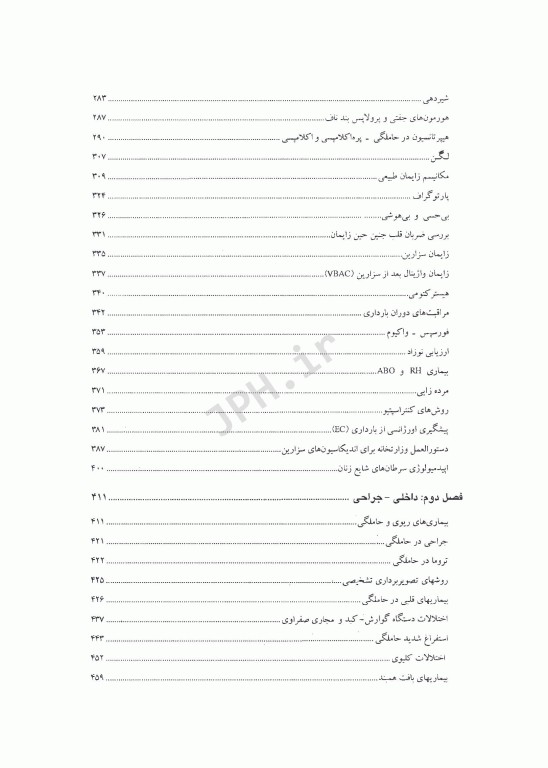 شیردهی ۲۸۳
هورمون‌های جفتی و پرولاپس بند ناف ۲۸۷
هیپرتانسیون در حاملگی - پره‌اکلامپسی و اکلامپسی ۲۹۰
لگن ۳۰۷
مکانیسم زایمان طبیعی ۳۰۹
پارتوگراف ۳۲۴
بی‌حسی و بی‌هوشی ۳۲۶
بررسی ضربان قلب جنین حین زایمان ۳۳۱
زایمان سزارین ۳۳۵
زایمان واژینال بعد از سزارین (VBAC) ۳۳۷
هیسترکتومی ۳۴۰
مراقبت‌های دوران بارداری ۳۴۲
فورسپس - واکیوم ۳۵۳
ارزیابی نوزاد ۳۵۹
بیماری RH و ABO ۳۶۷
مرده زایی ۳۷۱
روش‌های کنتراسپتیو ۳۷۳
پیشگیری اورژانسی از بارداری (EC) ۳۸۱
دستورالعمل وزارتخانه برای اندیکاسیون‌های سزارین ۳۸۷
اپیدمیولوژی سرطان‌های شایع زنان ۴۰۰
فصل دوم: داخلی - جراحی ۴۱۱
بیماری‌های ریوی و حاملگی ۴۱۱
جراحی در حاملگی ۴۲۱
تروما در حاملگی ۴۲۲
روشهای تصویربرداری تشخیصی ۴۲۵
بیماریهای قلبی در حاملگی ۴۲۶
اختلالات دستگاه گوارش- کبد و مجاری صفراوی ۴۳۷
استفراغ شدید حاملگی ۴۴۳
اختلالات کلیوی ۴۵۲
بیماریهای بافت همبند ۴۵۹
JPH.ir